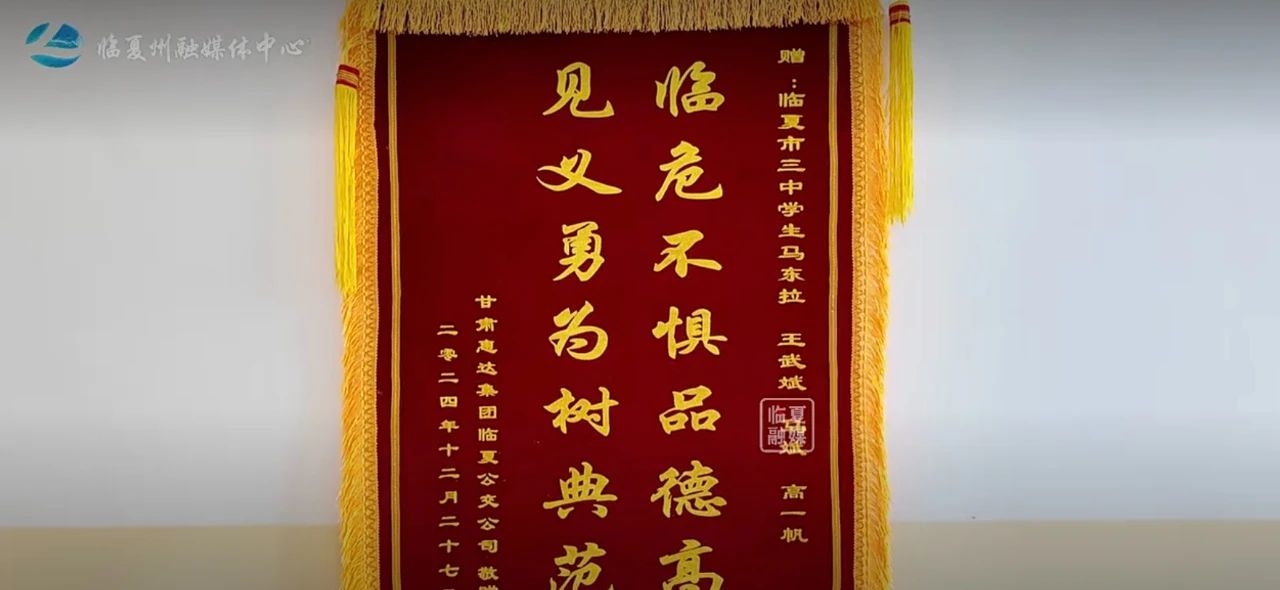 临夏州融媒体中心
赠：临夏市三中学生马东拉 王武斌 马斌 高一帆
临危不惧品德高
见义勇为树典范
甘肃惠达集团临夏公交公司 敬赠
二零二四年十二月二十七
临夏融媒